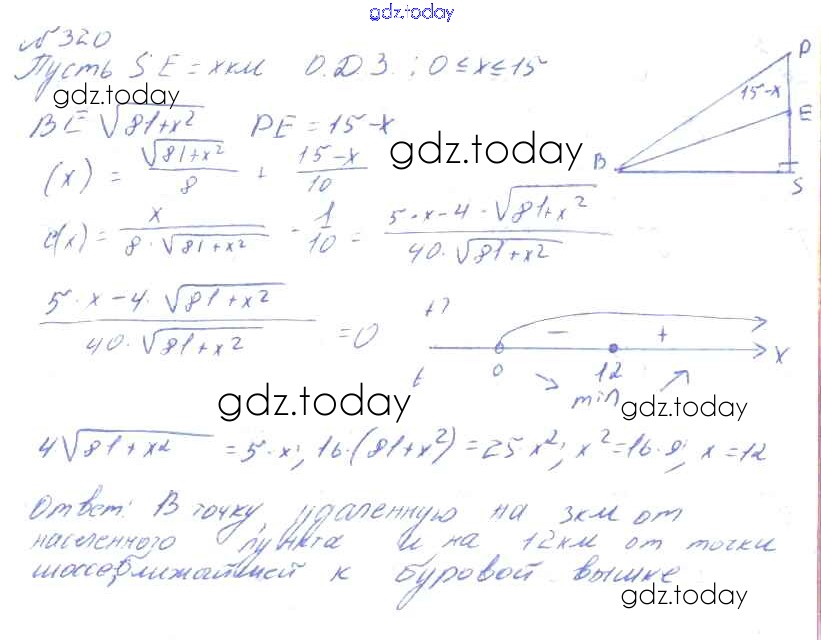 gdz.today
№ 320
Пусть SE = x км О.Д.З.: 0 ≤ x ≤ 15
gdz.today
BE √81+x² PE = 15-x
gdz.today
(x) = √81+x² / 8 + 15-x / 10
(x) = x / 8·√81+x² - 1/10 = 5·x-4·√81+x² / 40·√81+x²
5·x-4·√81+x² / 40·√81+x² = 0
P
15-x
E
B
S
- +
0 12 x
min
gdz.today
gdz.today
4√81+x2 = 5·x; 16·(81+x²) = 25x²; x²=16·9; x=12
Ответ: В точку удаленную на 3км от
населенного пункта и на 12км от точки
шоссе, ближайшей к буровой вышке
gdz.today